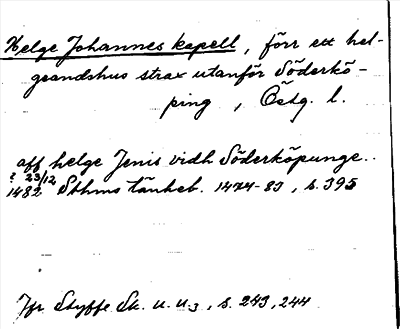 Helge Johannes kapell, förr ett hel-
geandshus strax utanför Söderkö-
ping, Östg. l.
aff helge Jenis vidh Söderköpunge..
? 23/12
1482 Sthms tänkeb. 1474-83, s. 395
Jfr Styffe Sk. u. u3, s. 243, 244